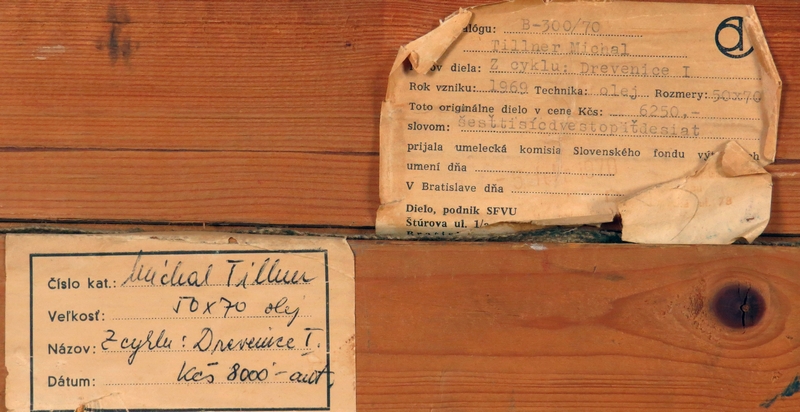 alógu: B-300/70
Tillner Michal
ov diela: Z cyklu: Drevenice I
Rok vzniku: 1969 Technika: olej Rozmery: 50x70
Toto originálne dielo v cene Kčs: 6250,-
slovom: šesťtisícdvestopäťdesiat
prijala umelecká komisia Slovenského fondu vý
umení dňa
V Bratislave dňa
Dielo, podnik SFVU
Štúrova ul. 1/
Číslo kat.: Michal Tillner
Veľkosť: 50x70 olej
Názov: Z cyklu: Drevenice I.
Dátum: Kčs 8000,- aut.